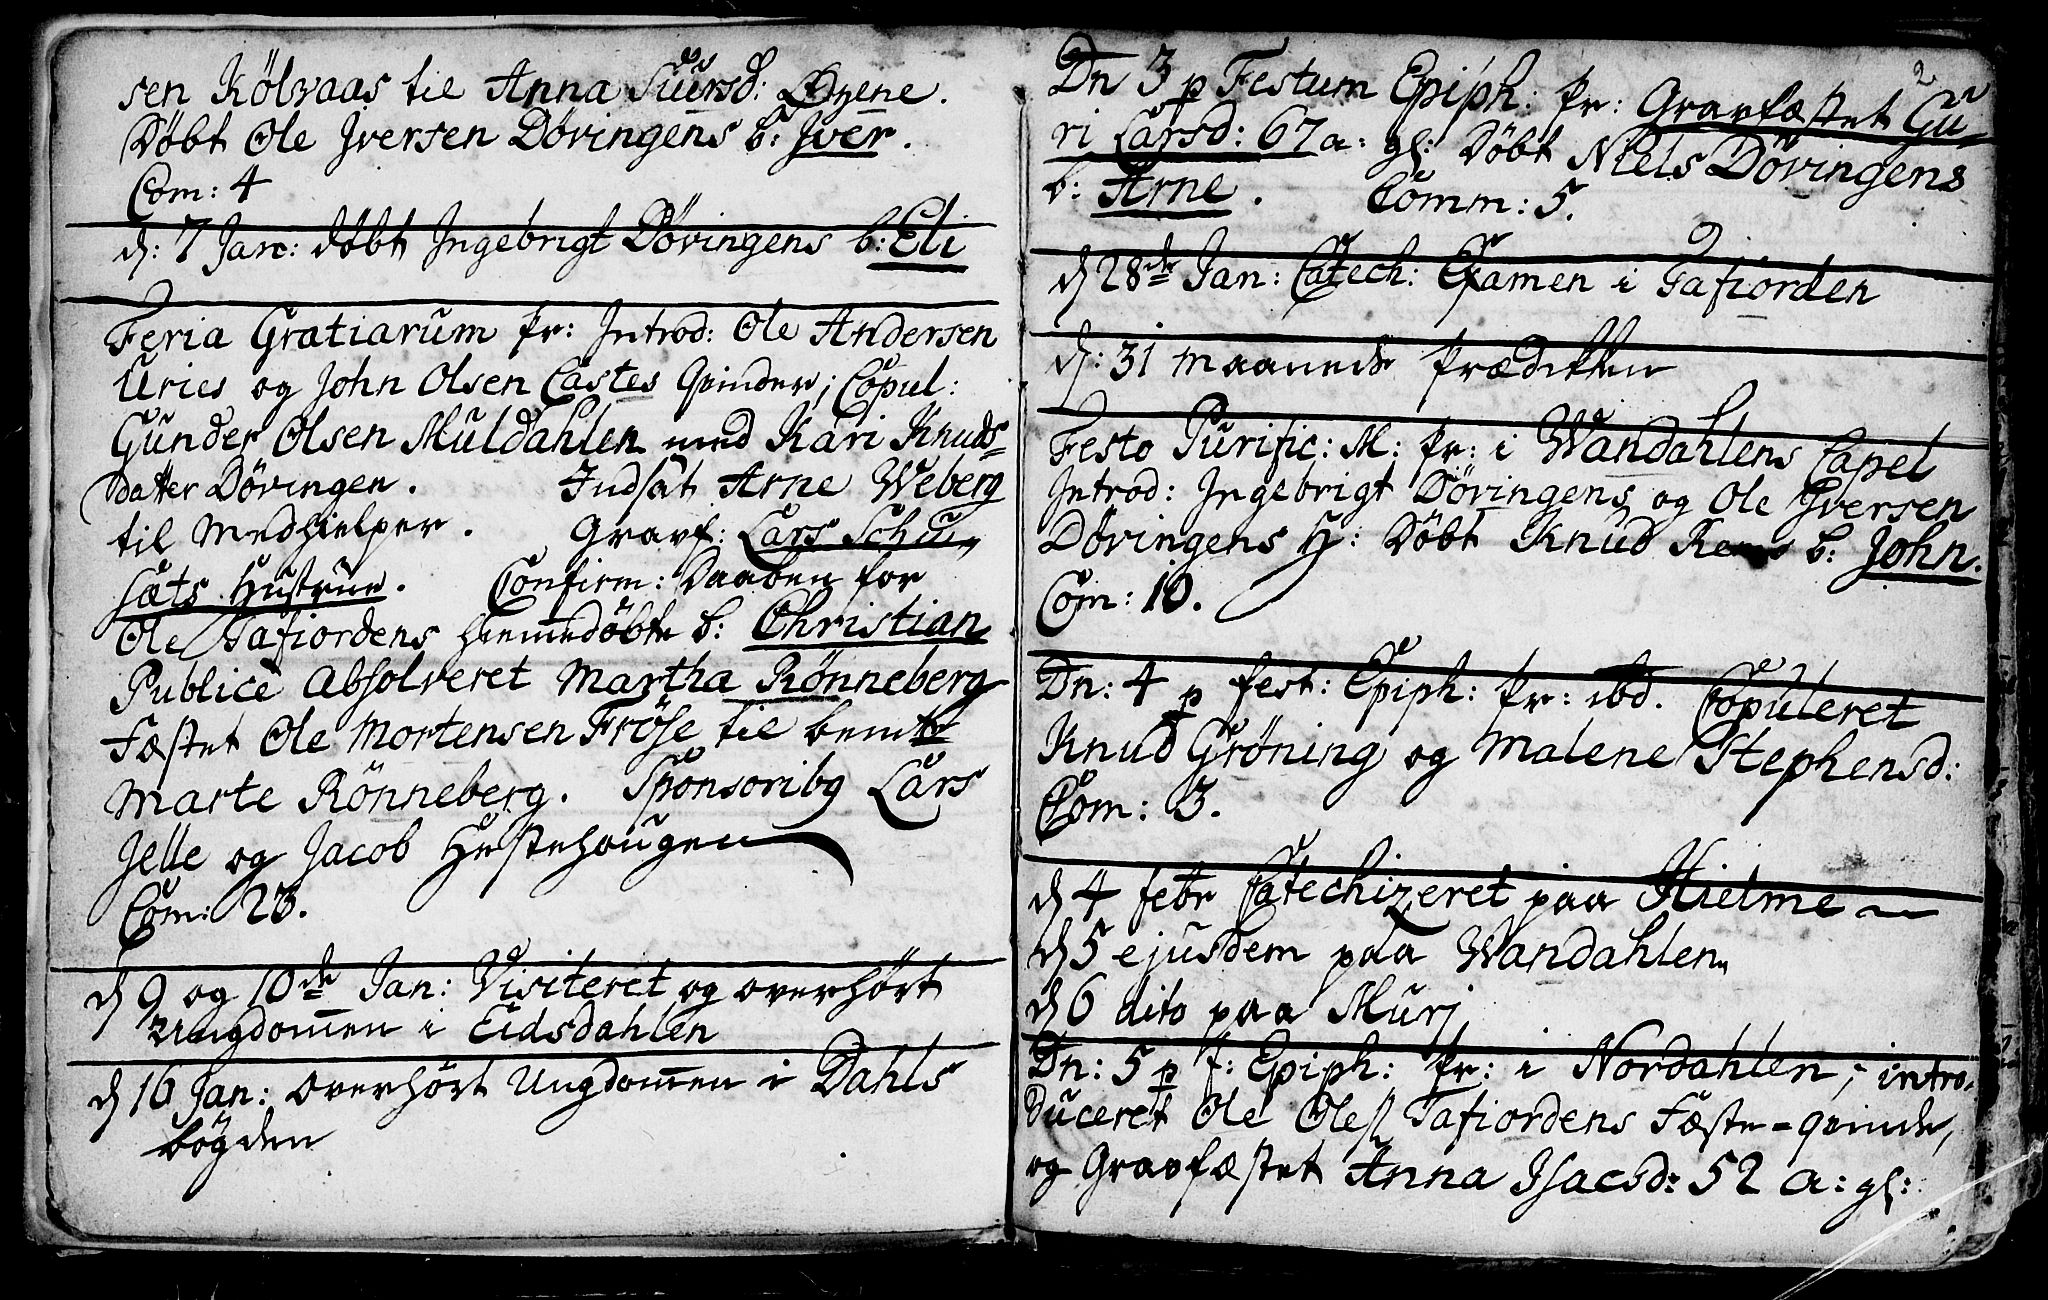 sen Kölvaas til Anna Siursd: Øyene.
Døbt Ole Jversen Dövingens b: Jver.
Com: 4
d: 7 Jan: døbt Jngebrigt Dövingens b: Eli
Feria Gratiarum Pr: Introd: Ole Andersen
Uries og John Olsen Castes Qvinder; Copul:
Gunder Olsen Muldahlen med Kari Knuds=
datter Dövingen. Indsat Arne Weberg
til Medhielper. Gravf: Lars Schu,,
sæts Hustrue. Confirm: Daaben for
Ole Tafiordens hiemmedöbte b: Christian
Publicè Absolveret Martha Rönneberg
Fæstet Ole Mortensen Fröse til bemte
Marte Rönneberg. Sponsoribq Lars
Jelle og Jacob Hestehougen
Com: 23.
d 9 og 10de Jan: Visiteret og overhört
Ungdommen i Eidsdahlen
d 16 Jan: overhört Ungdommen i Dahls
bögden
2
Dn 3 p Festum Epiph: Pr: Gravfæstet Gu,,
ri Larsd: 67 a: gl: Döbt Niels Dövingens
b: Arne. Comm: 5.
d 28de Jan: Catech: Examen i Tafiorden
d: 31 maaneds Prædikken
Festo Purific: M: Pr: i Wandahlens Capel
Introd: Jngebrigt Dövingens og Ole Jversen
Dövingens H: Döbt Knud b: John.
Com: 10.
Dn: 4 p fest: Epiph: Pr: ibd. Copuleret
Knud Gröning og Malene Stephensd:
Com: 3.
d 4 febr Catechizeret paa Hielme
d 5 ejusdem paa Wandahlen
d 6 dito paa Muri
Dn: 5 p f: Epiph: Pr: i Nordahlen; intro,
duceret Ole Oless Tafiordens Fæste=qvinde,
og Gravfæstet Anna Isacsd: 52 a: gl: